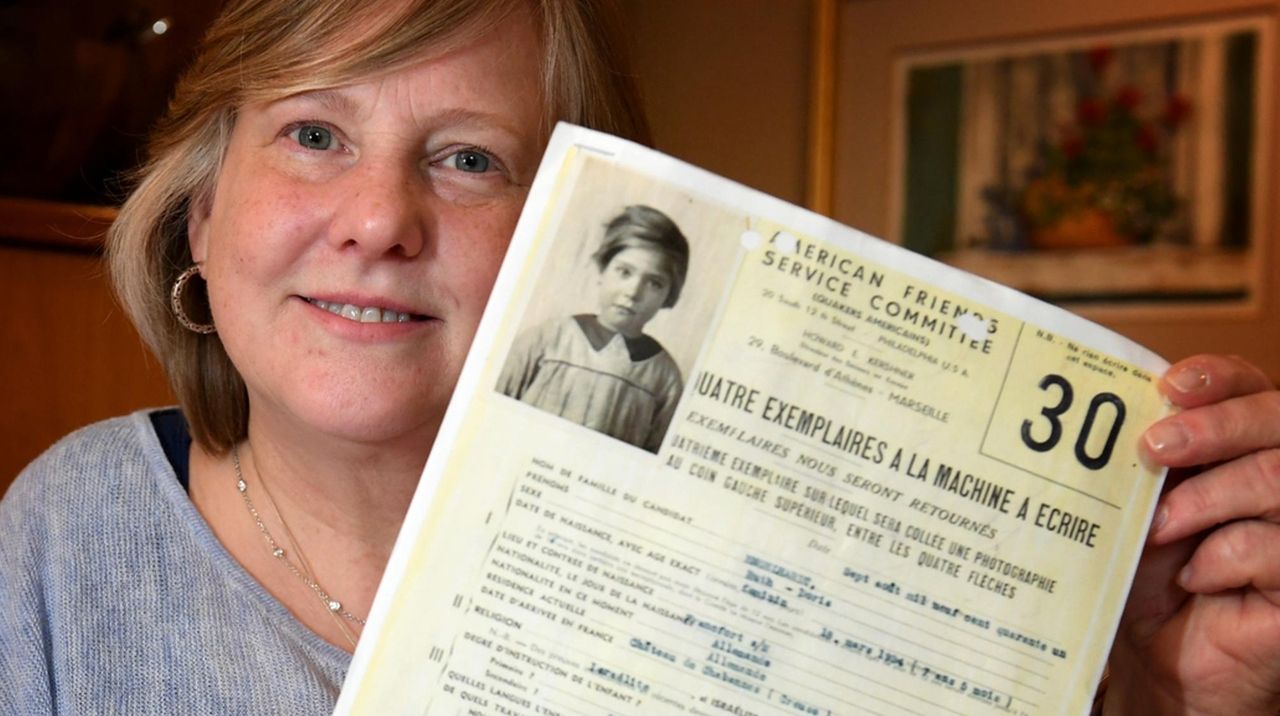 AMERICAN FRIENDS
SERVICE COMMITTEE
(QUAKERS AMERICAINS)
20 South 12 th Street PHILADELPHIA U.S.A.
HOWARD E. KERSHNER
29, Boulevard d'Athènes - MARSEILLE
N.B. - Ne rien écrire dans
cet espace.
30
QUATRE EXEMPLAIRES A LA MACHINE A ECRIRE
EXEMPLAIRES NOUS SERONT RETOURNÉS
UATRIÈME EXEMPLAIRE SUR LEQUEL SERA COLLÉE UNE PHOTOGRAPHIE
AU COIN GAUCHE SUPÉRIEUR, ENTRE LES QUATRE FLÈCHES
Date Sept août mil neuf cent quarante un
NOM DE FAMILLE DU CANDIDAT
PRENOMS Ruth - Doris
SEXE
I DATE DE NAISSANCE, AVEC AGE EXACT 18. mars 1934 ( 7 ans 5 mois )
LIEU ET CONTRÉE DE NAISSANCE Francfort s/M
NATIONALITE, LE JOUR DE LA NAISSANCE Allemande
NATIONALITE EN CE MOMENT Allemande
II RESIDENCE ACTUELLE Château de Chabannes ( Creuse )
DATE D'ARRIVEE EN FRANCE
RELIGION Israélite
III DEGRE D'INSTRUCTION DE L'ENFANT ?
Primaire ?
Secondaire ?
QUELLES LANGUES
DE QUELS